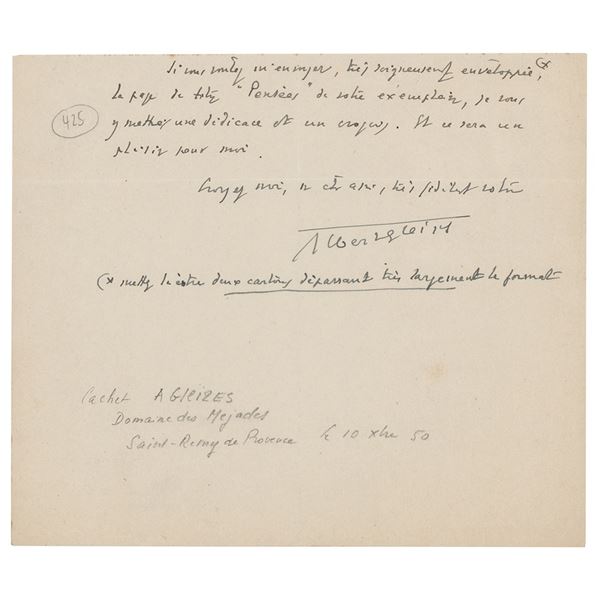 Si vous voulez m'envoyer, très soigneusement enveloppée (x,
la page de titre "Pensées" de votre exemplaire, je vous
y mettrai une dédicace et un croquis. Et ce sera un
plaisir pour moi.
425
Croyez moi, cher ami, très fidèlement vôtre
Albert Gleizes
(x mettez la entre deux cartons dépassant très largement le format
Cachet A GLEIZES
Domaine des Mejades
Saint-Remy de Provence le 10 xbre 50